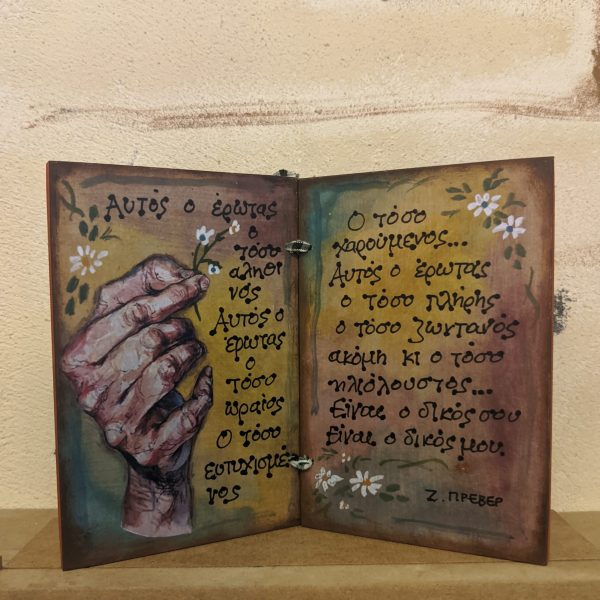 Αυτός ο έρωτας
ο
τόσο
αληθι
νός
Αυτός ο
έρωτας
ο
τόσο
ωραίος
Ο τόσο
ευτυχισμέ
νος
Ο τόσο
χαρούμενος...
Αυτός ο έρωτας
ο τόσο πλήρης
ο τόσο ζωντανός
ακόμη κι ο τόσο
ηλιόλουστος...
Είναι ο δικός σου
Είναι ο δικός μου.
Ζ. ΠΡΕΒΕΡ